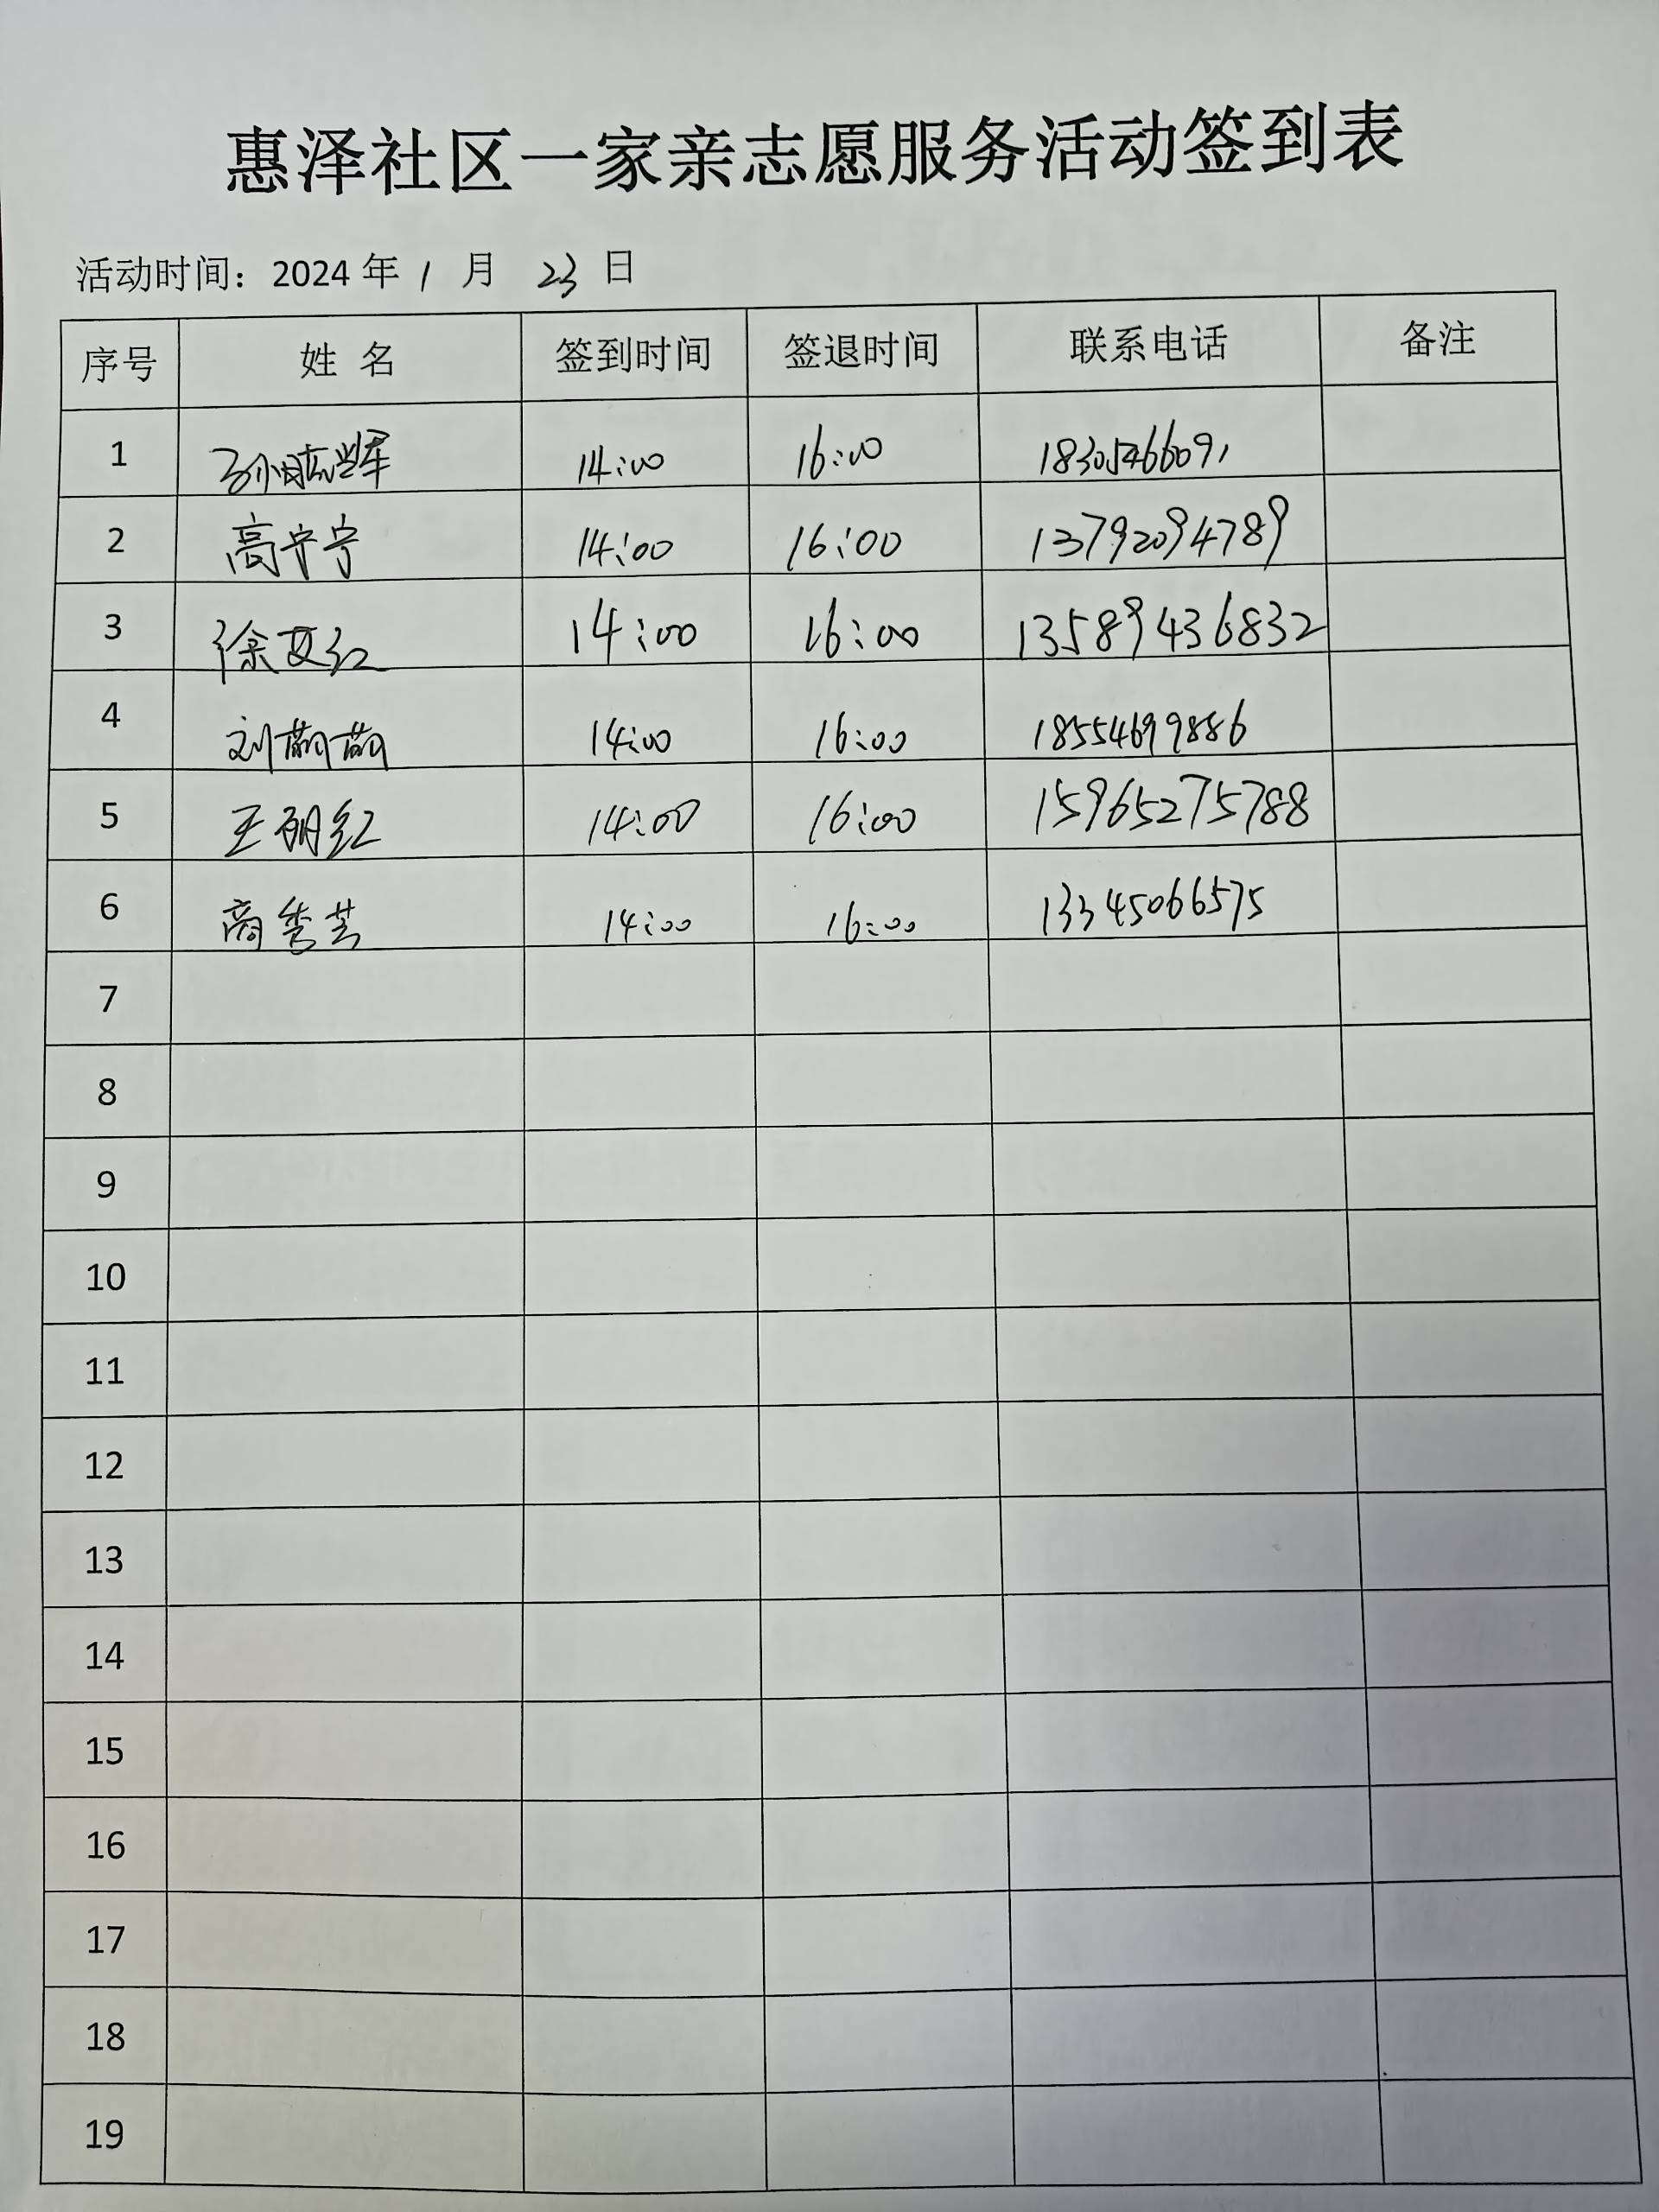 惠泽社区一家亲志愿服务活动签到表
活动时间：2024 年 1 月 23 日
序号 姓 名 签到时间 签退时间 联系电话 备注
1 14:00 16:00 18305466091
2 高宁宁 14:00 16:00 13792094789
3 徐艾红 14:00 16:00 13589436832
4 刘萌萌 14:00 16:00 18554699886
5 王朝红 14:00 16:00 15965275788
6 商秀芸 14:00 16:00 13345066575
7
8
9
10
11
12
13
14
15
16
17
18
19